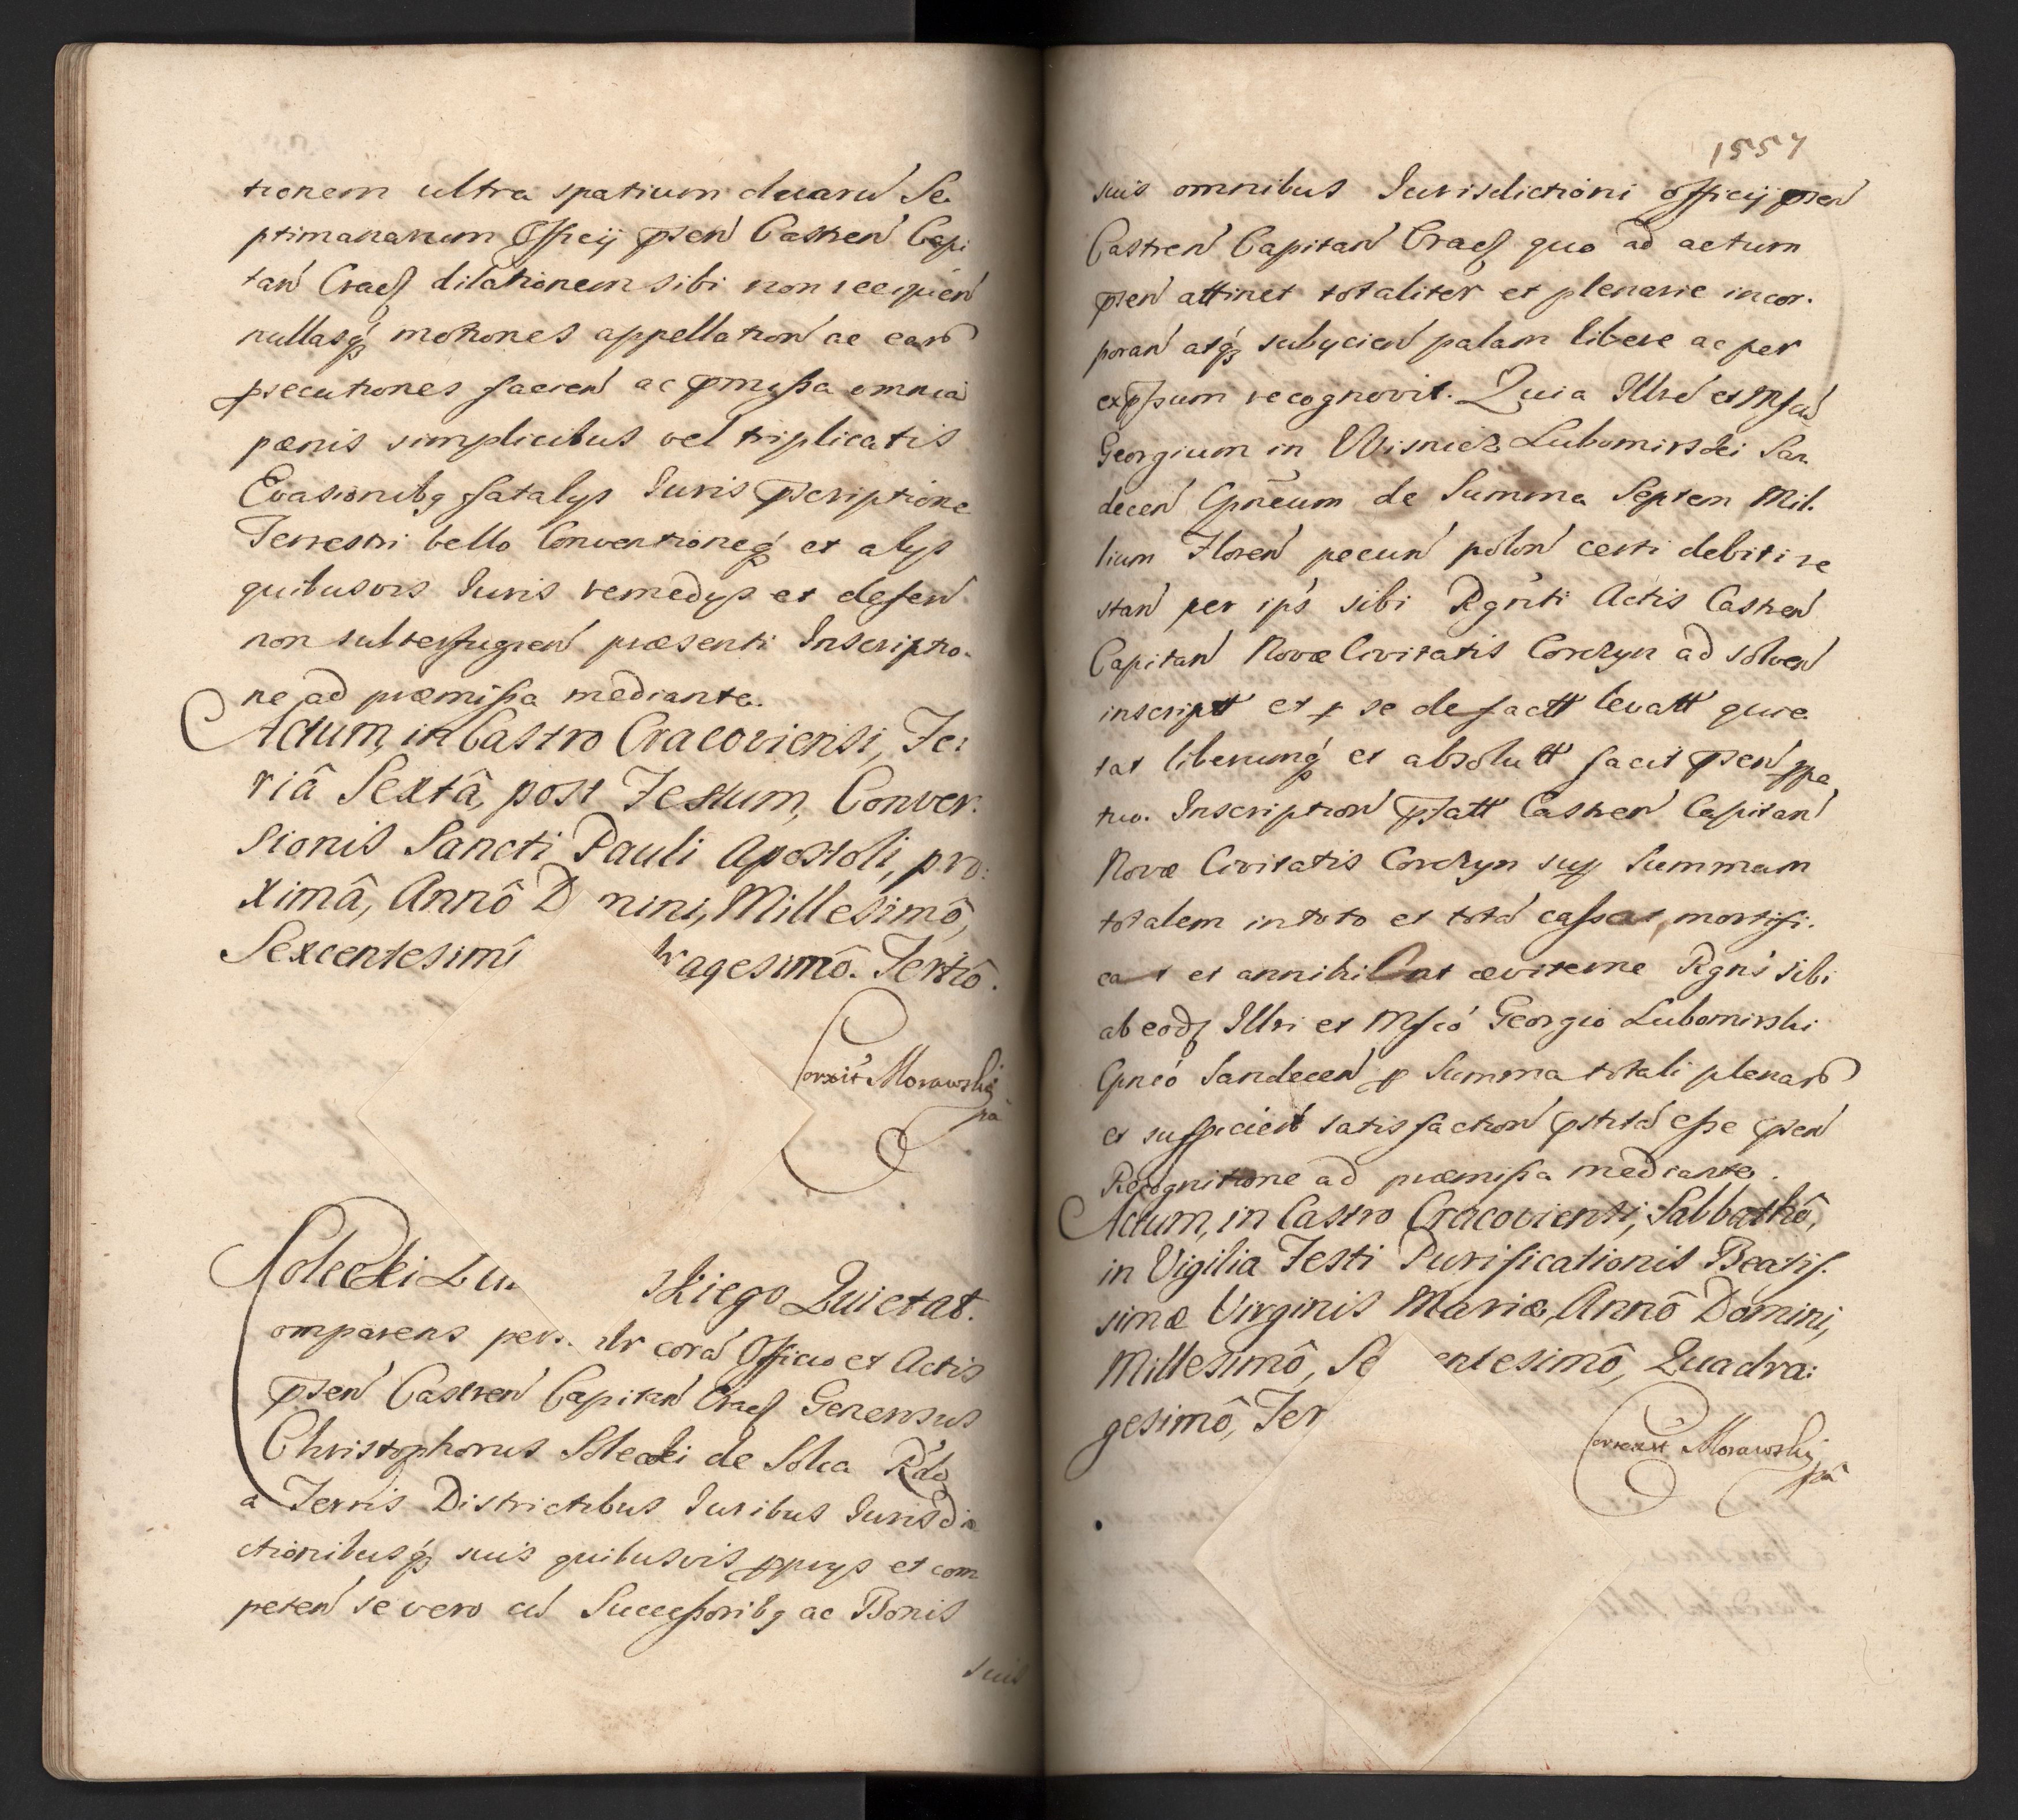 tionem ultra spatium duarū Se
ptimanarum Officij pñsen Castren Capi
tan Cracẽ dilationem sibi non recipien
nullasq́ motiones appellation ac earū
psecutiones facien ac pmissa omnia
pœnis simplicibus vel triplicatis
Evasionibq fatalys Iuris pscriptione
Terrestri bello Conventioneq́ et alys
quibusvis Iuris remedys et defen
non subterfugien præsenti Inscriptio-
ne ad præmissa mediante.
Actum, in Castro Cracoviensi, Fe:
riâ Sextâ, post Festum, Conver:
sionis Sancti Pauli Apostoli, pro:
ximâ, Annô D nini, Millesimô,
Sexcentesimô ragesimô. Tertiô.
Correxit Morawskj
pã
Solecki Lu skiego Quietat.
Comparens pers. ltr corā Officio et Actis
psen Castren Capitan Cracẽ Generosus
Christophorus Solecki de Solca Rdo
a Terris Districtibus Iuribus Iurisdi
ctionibusq́ suis quibusvis pprys et com
peten se vero cū Successoribq ac Bonis
suis
1557
suis omnibus Iurisdictioni officij psen
Castren Capitan Cracẽ quo ad actum
psen attinet totaliter et plenarie incor-
poran atq́ subycien palam libere ac per
expssum recognovit. Quia Illrē et Mfcū
Georgium in Wisnicz Lubomirski San
decen Cpneum de Summa Septem Mil-
lium Floren pecun polon certi debiti re
stan per ips sibi Rgnti Actis Castren
Capitan Novæ Civitatis Corczyn ad solven
inscriptt et p se de factt levatt quie
tat liberumq́ et absolutt facit psen ppe
tuo. Inscription pfatt Castren Capitan
Novæ Civitatis Corczyn sup Summam
totalem in toto et totā cassat, mortifi-
cat et annihilat æviterne Rgns sibi
ab eodẽ Illri et Mfcó Georgio Lubomirski
Cpneó Sandecen p Summa totali plenarō
et sufficien satisfaction pstitā esse psen
Recognitione ad præmissa mediante.
Actum, in Castro Cracoviensi, Sabbathô,
in Vigilia Festi Purificationis Beatis-
simæ Virginis Mariæ, Annô Domini,
Millesimô, Se entesimô, Quadra:
gesimô, Ter
Correxit Morawskj
pã